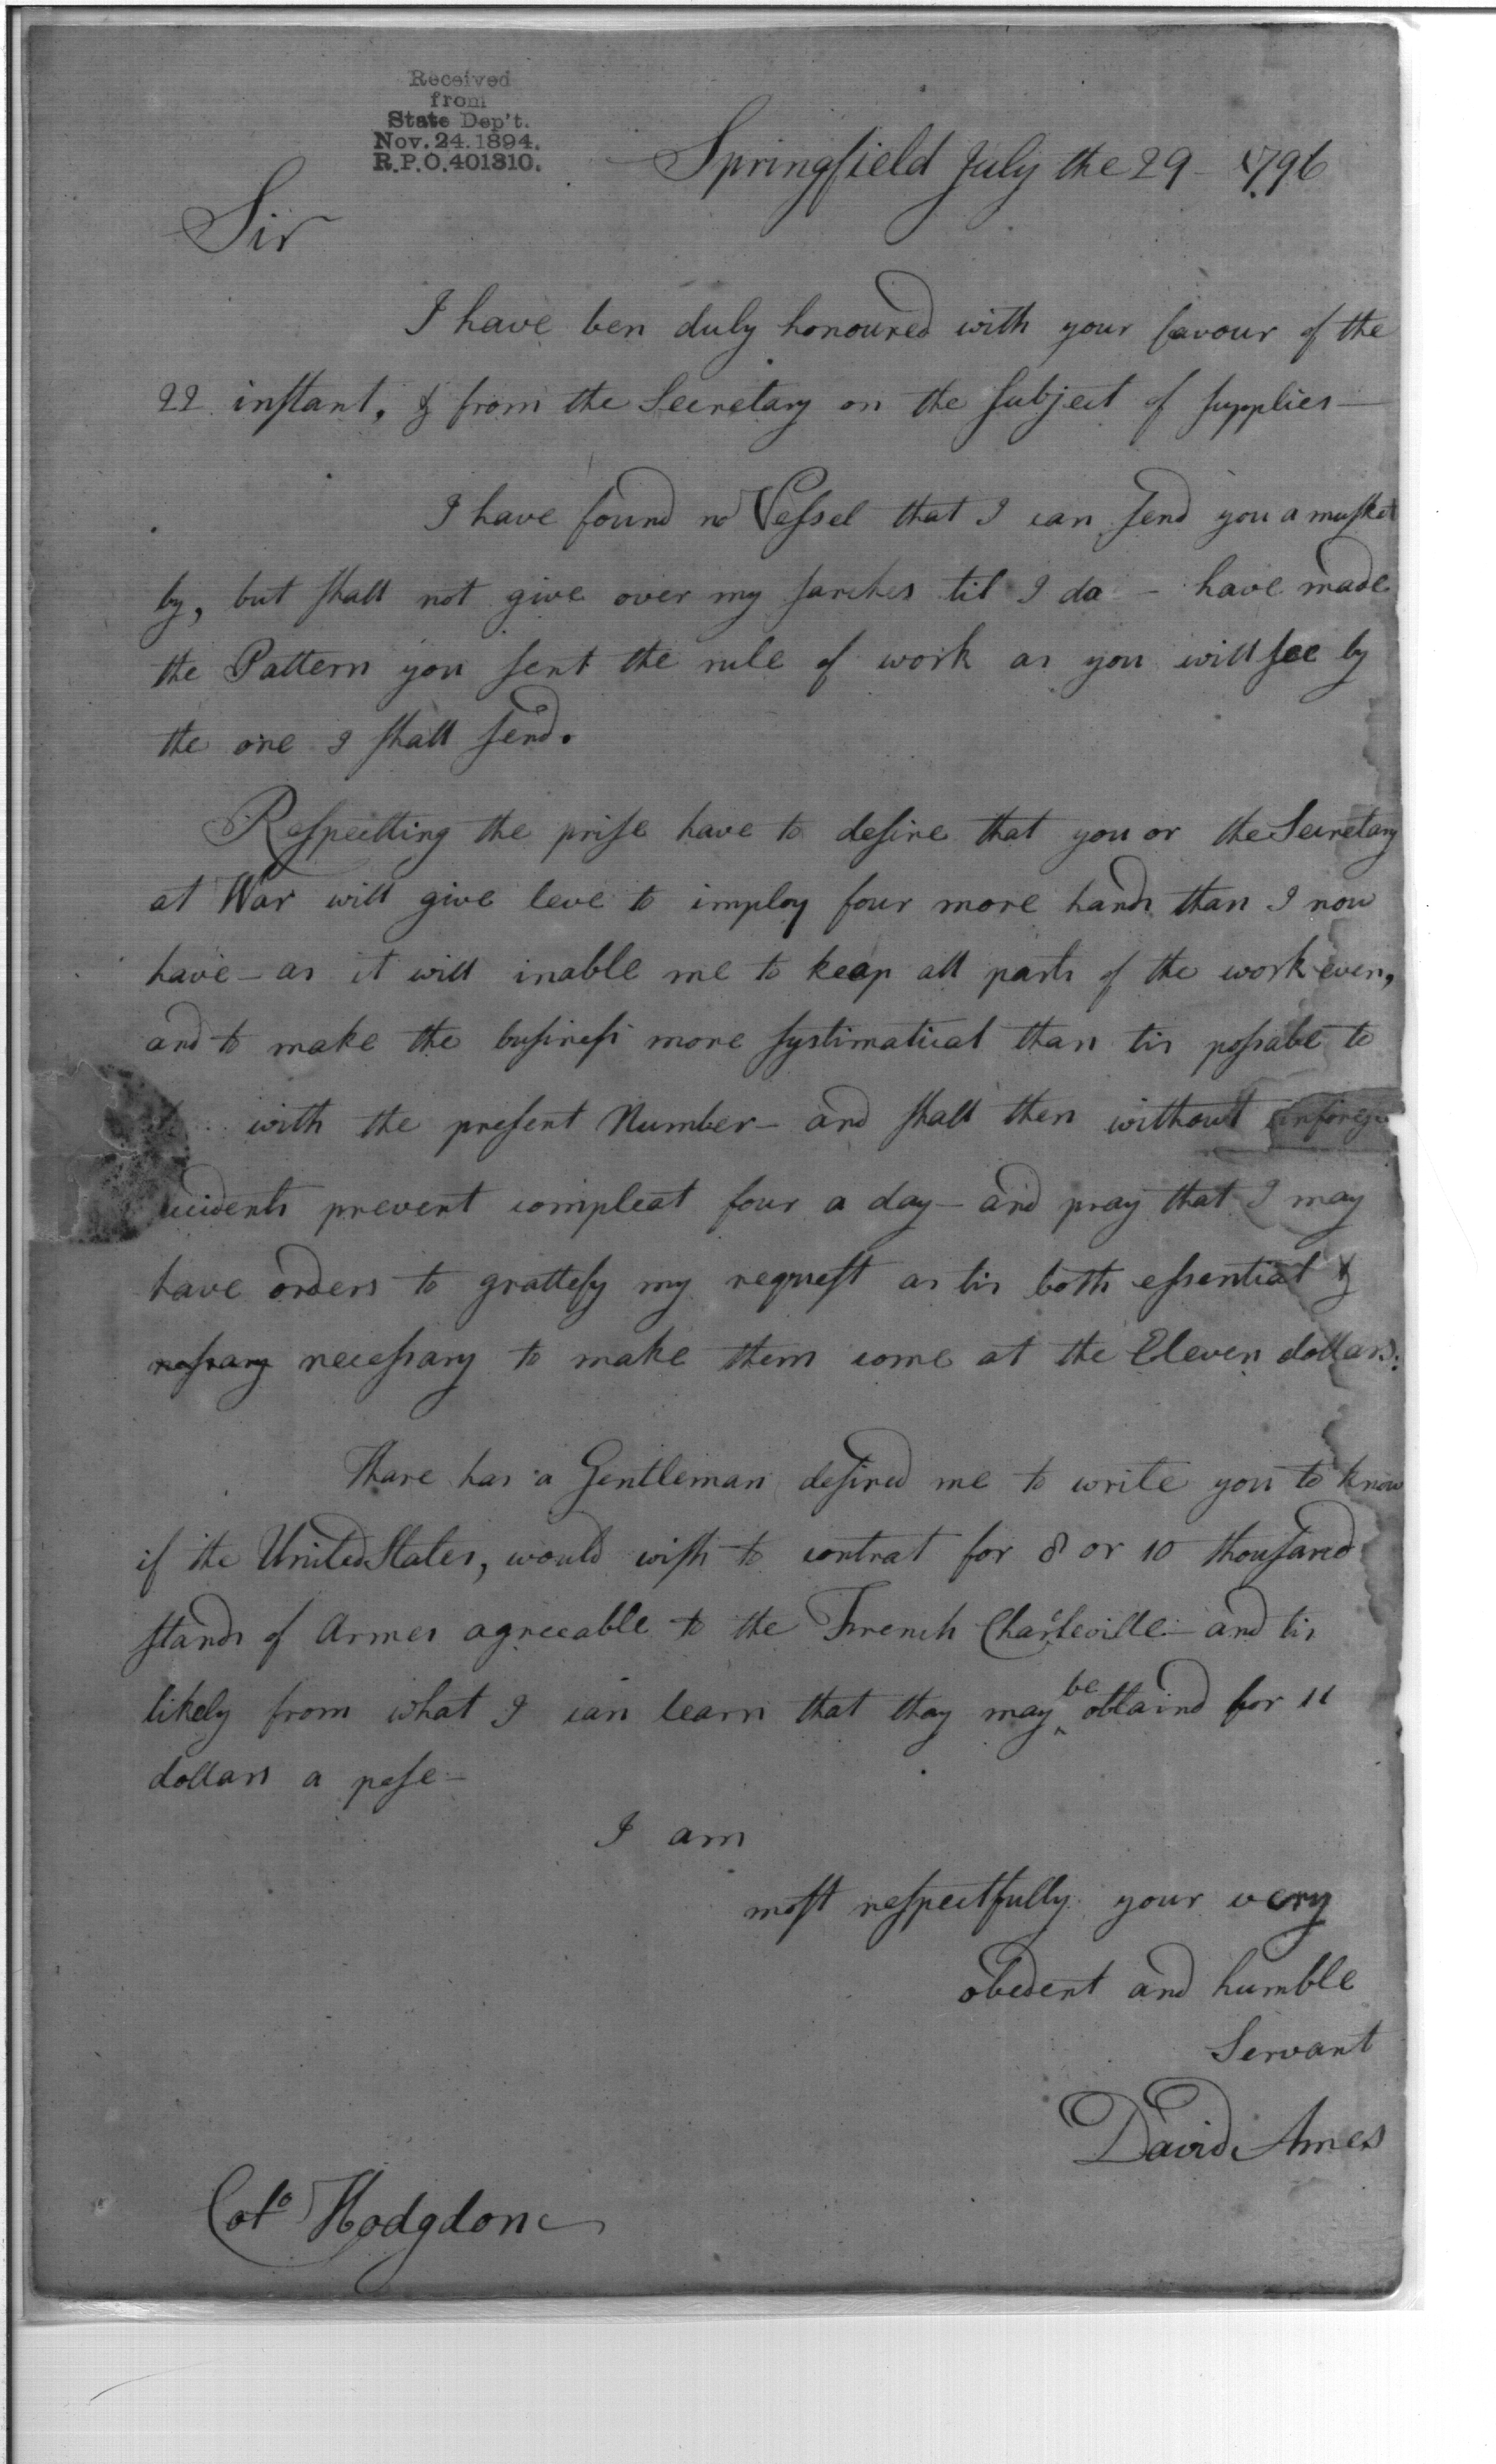 Received
from
State Dep't.
Nov. 24. 1894.
R.P.O. 401310.
Springfield July the 29 - 1796
Sir
I have ben duly honoured with your favour of the
22 instant, & from the Secretary on the subject of supplies —
I have found no Vessel that I can send you a musket
by, but shall not give over my sarches til I do - have made
the Pattern you sent the rule of work as you will see by
the one I shall send.
Respectting the prise have to desire that you or the Secretary
at War will give leve to imploy four more hands than I now
have - as it will inable me to keap all parts of the work even,
and to make the business more systimatical than tis possable to
with the present Number - and shall then without
ccidents prevent compleat four a day - and pray that I may
have orders to grattefy my request as tis both essential &
nessary necessary to make them come at the Eleven dollars:
Thare has a Gentleman desired me to write you to know
if the United States, would wish to contrat for 8 or 10 thousand
stands of Armes agreeable to the French Charleville - and tis
likely from what I can learn that thay may be obtaind for 11
dollars a pese -
I am
most respectfully your very
obedent and humble
Servant
David Ames
Colo Hodgdon